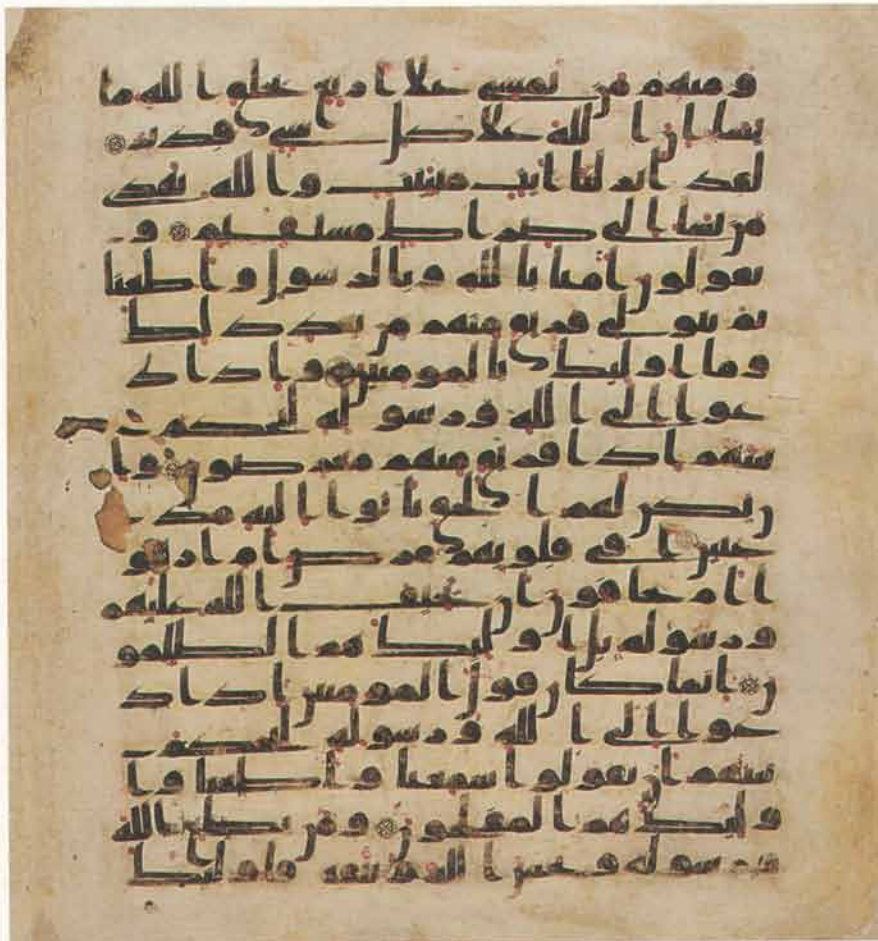 ومنهم من يمشي على اربع يخلق الله ما
يشا ان الله على كل شي قدير
لقد انزلنا ايت مبينت والله يهدي
من يشا الى صراط مستقيم و
يقولون امنا بالله وبالرسول واطعنا
ثم يتولى فريق منهم من بعد ذلك
وما اوليك بالمومنين واذا د
عوا الى الله ورسوله ليحكم ب
ينهم اذا فريق منهم معرضون وا
ن يكن لهم الحق ياتوا اليه مذ
عنين افي قلوبهم مرض ام ارتابو
ا ام يخافون ان يحيف الله عليهم
ورسوله بل اوليك هم الظلمو
ن انما كان قول المومنين اذا د
عوا الى الله ورسوله ليحكم ب
ينهم ان يقولوا سمعنا واطعنا وا
وليك هم المفلحون ومن يطع الله
ورسوله ويخش الله ويتقه فاوليك